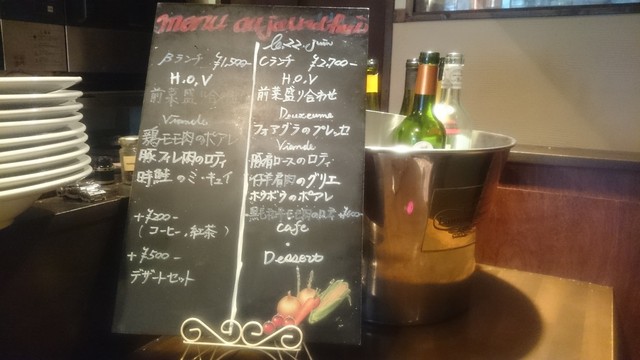 menu aujourd'hui
le 22 juin
Bランチ ¥1,500-
H.O.V
前菜盛り合わせ
Viande
鶏モモ肉のポアレ
豚フィレ肉のロティ
時鮭のミ・キュイ
+¥200-
(コーヒー、紅茶)
+¥500-
デザートセット
Cランチ ¥2,700-
H.O.V
前菜盛り合わせ
Deuxieme
フォアグラのプレッセ
Viande
豚肩ロースのロティ
仔羊肩肉のグリエ
ホウボウのポアレ
cafe
・
Dessert